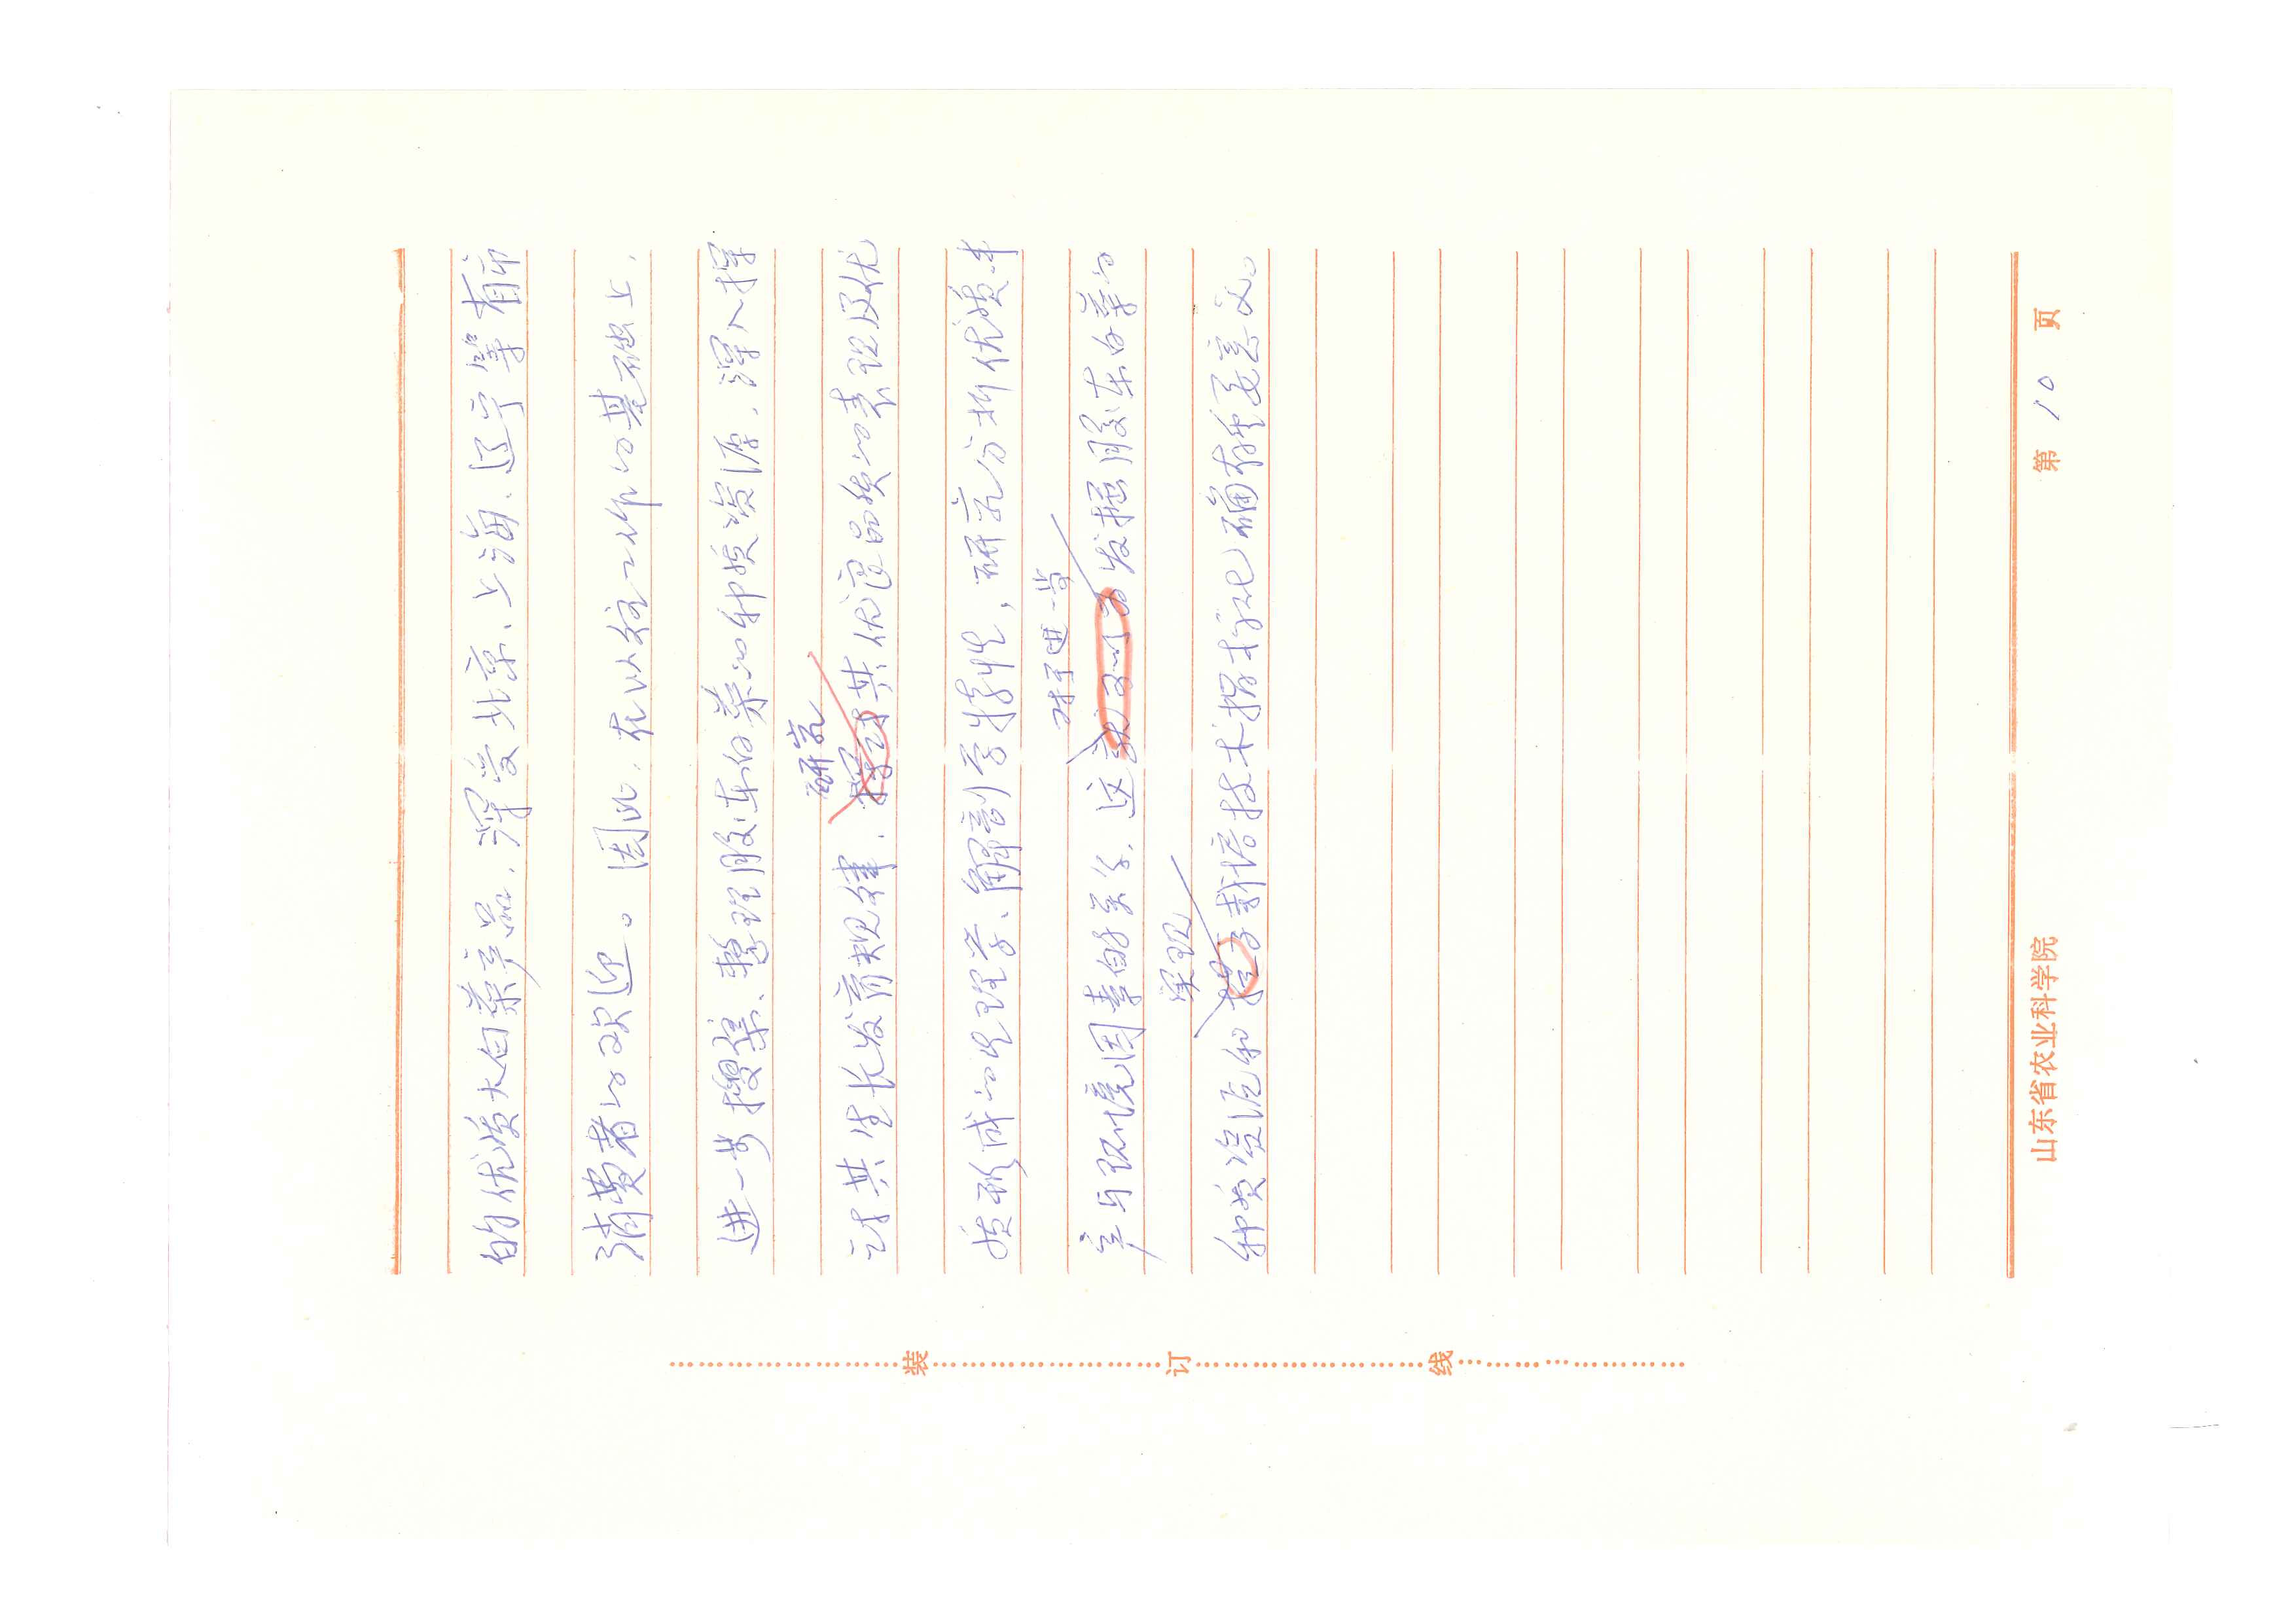 的优质大白菜产品，深受北京、上海、辽宁等省市
消费者的欢迎。因此，在以往工作的基础上，
进一步搜集、整理胶东白菜的种质资源，深入探
研究
讨其生长发育规律，探讨其优良品质的表现及优
质形成的生理学、解剖学特性，研究分析优质丰
对于进一步
产与环境因素的关系，这为发掘胶东白菜的
实现
种质资源和栽培技术指标化确有重要意义。
第 10 页
山东省农业科学院
装 订 线